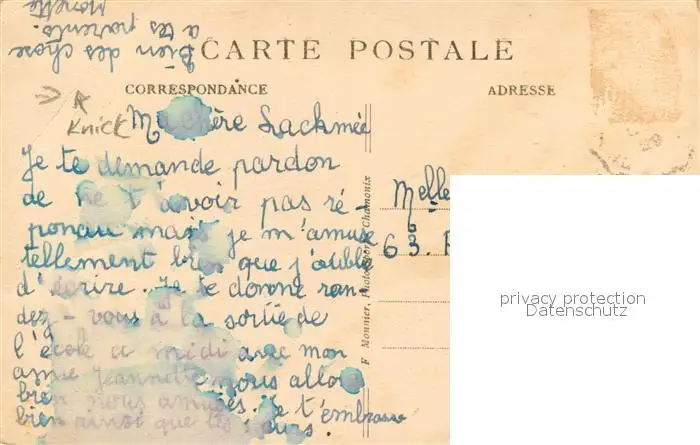 Bien des chose
a tes parents.
Monette
CARTE POSTALE
CORRESPONDANCE
ADRESSE
Knick
Ma chère Lackmée
Je te demande pardon
de ne t'avoir pas ré-
pondu mais je m'amuse
tellement bien que j'oublie
d'écrire. Je te donne ran
dez-vous à la sortie de
l'école a midi avec mon
amie Jeannette nous allons
bien nous amusés. Je t'embrasse
bien ainsi que tes sœurs.
F. Monnier, Photo Sport, Chamonix
Melle
63.
privacy protection
Datenschutz